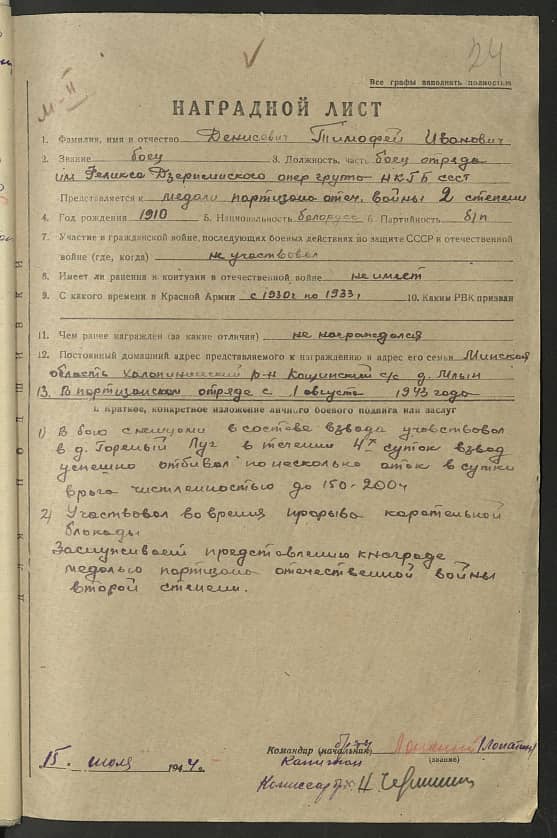 24
Все графы заполнять полностью
М-II
НАГРАДНОЙ ЛИСТ
1. Фамилия, имя и отчество Денисевич Тимофей Иванович
2. Звание боец 3. Должность, часть боец отряда
им Феликса Дзержинского опер группа НКГБ СССР
Представляется к медали партизана отеч. войны 2 степени
4. Год рождения 1910 5. Национальность белорус 6. Партийность б/п
7. Участие в гражданской войне, последующих боевых действиях по защите СССР и отечественной
войне (где, когда) не участвовал
8. Имеет ли ранения и контузии в отечественной войне не имеет
9. С какого времени в Красной Армии с 1930г по 1933г 10. Каким РВК призван
11. Чем ранее награжден (за какие отличия) не награждался
12. Постоянный домашний адрес представляемого к награждению и адрес его семьи Минская
область Холопиничский р-н с/с д.
13. В партизанском отряде с 1 августа 1943 года
I. Краткое, конкретное изложение личного боевого подвига или заслуг
1) В бою с немцами в составе взвода участвовал
в д. Горелый Луг в течении 4х суток взвод
успешно отбивал по несколько атак в сутки
врага численностью до 150-200ч
2) Участвовал во время прорыва карательной
блокады
Заслуживает представлению к награде
медалью партизана отечественной войны
второй степени.
Командир (начальник) (Лопатин)
15. июля 1944г. Капитан (звание)
Комиссар
Для подшивки